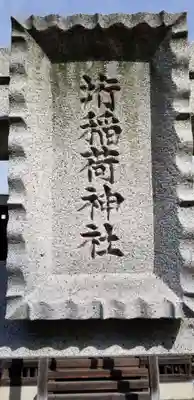 垳稲荷神社